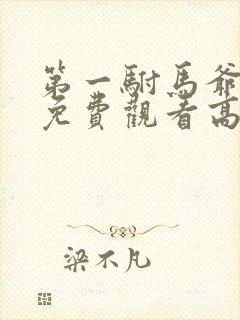 第一駙馬爺
免費觀看高
梁不凡